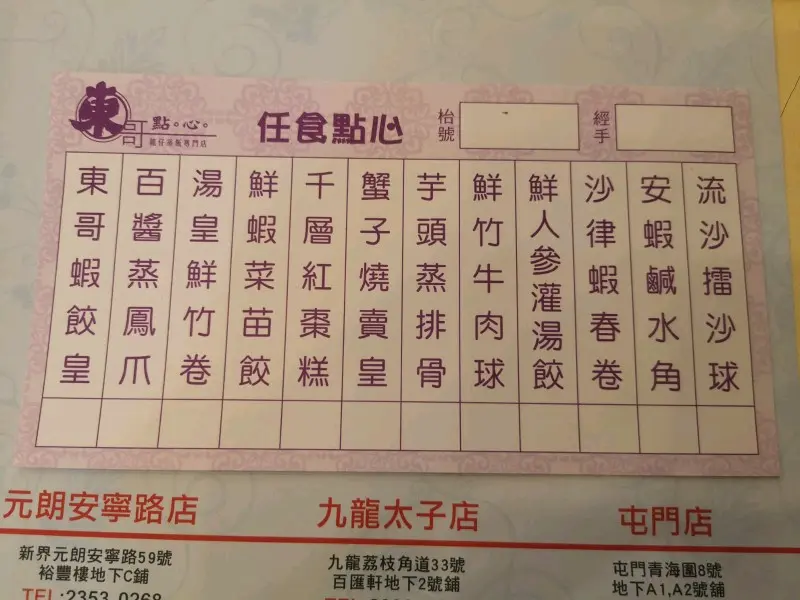 東哥
點。心。
任食點心
枱號
經手
東哥蝦餃皇
百醬蒸鳳爪
湯皇鮮竹卷
鮮蝦菜苗餃
千層紅棗糕
蟹子燒賣皇
芋頭蒸排骨
鮮竹牛肉球
鮮人參灌湯餃
沙律蝦春卷
安蝦鹹水角
流沙擂沙球
元朗安寧路店
新界元朗安寧路59號
裕豐樓地下C鋪
TEL:2353 0268
九龍太子店
九龍荔枝角道33號
百匯軒地下2號舖
屯門店
屯門青海圍8號
地下A1,A2號舖